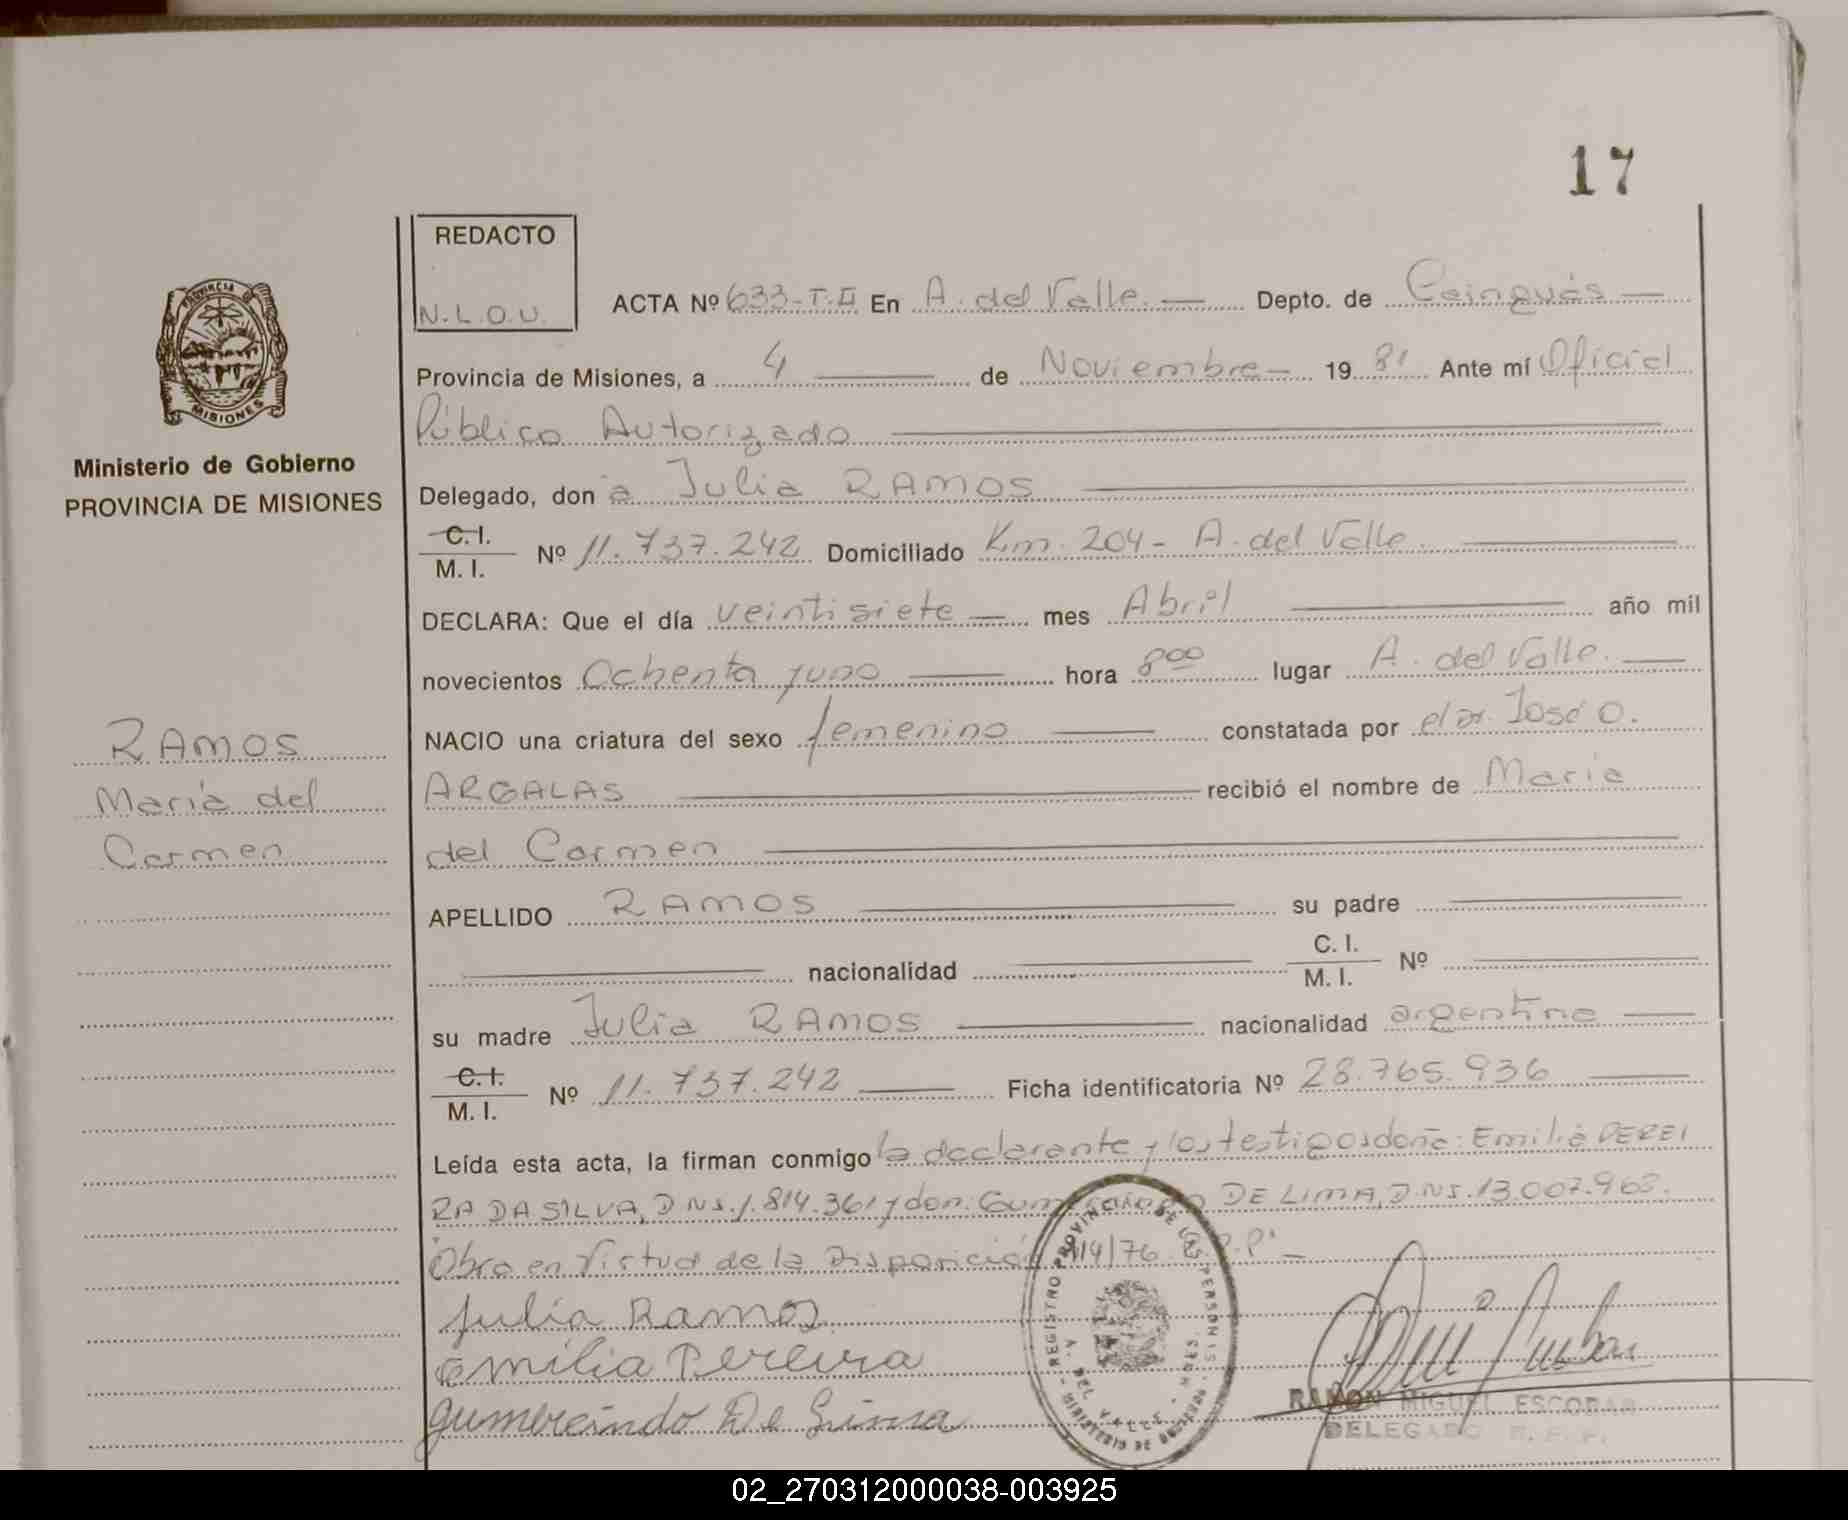 17
REDACTO
N.L.O.U.
ACTA Nº 633-T.II En A. del Valle. Depto. de Cainguás
Provincia de Misiones, a 4 de Noviembre 1981 Ante mí Oficial
Público Autorizado
Delegado, don a Julia RAMOS
C. I.
M. I.
Nº 11.737.242 Domiciliado Km. 204 - A. del Valle.
DECLARA: Que el día veintisiete mes Abril año mil
novecientos Ochenta y uno hora 8 00 lugar A. del Valle.
NACIO una criatura del sexo femenino constatada por el Dr. José O.
ARGALAS recibió el nombre de María
del Carmen
APELLIDO RAMOS su padre
nacionalidad C. I. M. I. Nº
su madre Julia RAMOS nacionalidad argentina
C. I.
M. I.
Nº 11.737.242 Ficha identificatoria Nº 28.765.936
Leída esta acta, la firman conmigo la declarante y los testigos doña: Emilia PEREI
RA DA SILVA, DNI. 1.814.361 y don: DE LIMA, DNI. 13.007.963.
Obra en Virtud de la Disposición 114/76
Julia Ramos
Emilia Pereira
Gumercindo De Lima
REGISTRO PROVINCIAL DE LAS PERSONAS
A. DEL VALLE - MNES.
MINISTERIO DE GOBIERNO
RAMON MIGUEL ESCOBAR
DELEGADO R. P. P.
PROVINCIA
MISIONES
Ministerio de Gobierno
PROVINCIA DE MISIONES
RAMOS
María del
Carmen
02_270312000038-003925